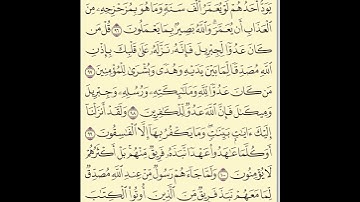 يَوَدُّ أَحَدُهُمْ لَوْ يُعَمَّرُ أَلْفَ سَنَةٍ وَمَا هُوَ بِمُزَحْزِحِهِۦ مِنَ
ٱلْعَذَابِ أَن يُعَمَّرَ ۗ وَٱللَّهُ بَصِيرٌۢ بِمَا يَعْمَلُونَ ٩٦ قُلْ مَن
كَانَ عَدُوًّا لِّجِبْرِيلَ فَإِنَّهُۥ نَزَّلَهُۥ عَلَىٰ قَلْبِكَ بِإِذْنِ
ٱللَّهِ مُصَدِّقًا لِّمَا بَيْنَ يَدَيْهِ وَهُدًى وَبُشْرَىٰ لِلْمُؤْمِنِينَ
٩٧ مَن كَانَ عَدُوًّا لِّلَّهِ وَمَلَـٰٓئِكَتِهِۦ وَرُسُلِهِۦ وَجِبْرِيلَ
وَمِيكَىٰلَ فَإِنَّ ٱللَّهَ عَدُوٌّ لِّلْكَـٰفِرِينَ ٩٨ وَلَقَدْ أَنزَلْنَآ
إِلَيْكَ ءَايَـٰتٍۭ بَيِّنَـٰتٍ ۖ وَمَا يَكْفُرُ بِهَآ إِلَّا ٱلْفَـٰسِقُونَ ٩٩
أَوَكُلَّمَا عَـٰهَدُوا۟ عَهْدًا نَّبَذَهُۥ فَرِيقٌ مِّنْهُم ۚ بَلْ أَكْثَرُهُمْ
لَا يُؤْمِنُونَ ١٠٠ وَلَمَّا جَآءَهُمْ رَسُولٌ مِّنْ عِندِ ٱللَّهِ مُصَدِّقٌ
لِّمَا مَعَهُمْ نَبَذَ فَرِيقٌ مِّنَ ٱلَّذِينَ أُوتُوا۟ ٱلْكِتَـٰبَ